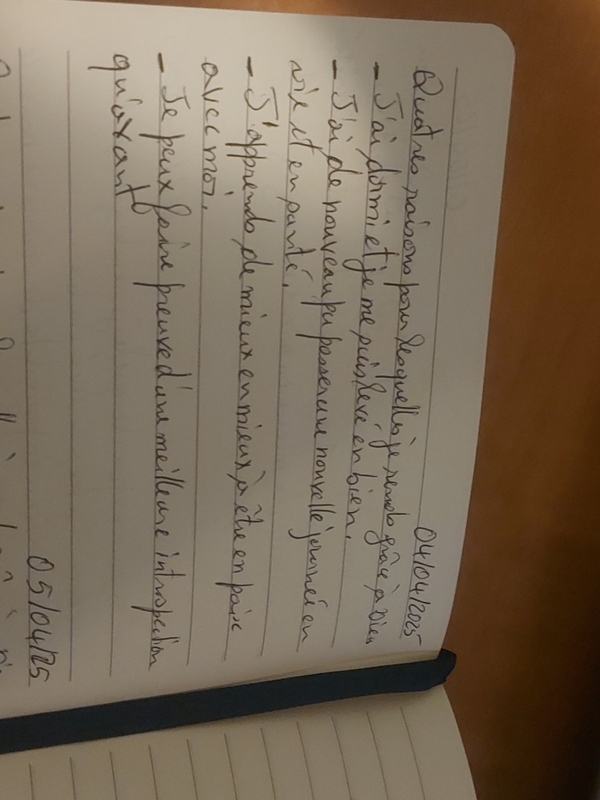 04/04/2025
Quatres raisons pour lesquelles je rends grâce à Dieu
- J'ai dormi et je me suis levé en bien.
- J'ai de nouveau pu passer une nouvelle journée en
vie et en santé.
- J'apprends de mieux en mieux à être en paix
avec moi.
- Je peux faire preuve d'une meilleure introspection
qu'avant
05/04/25